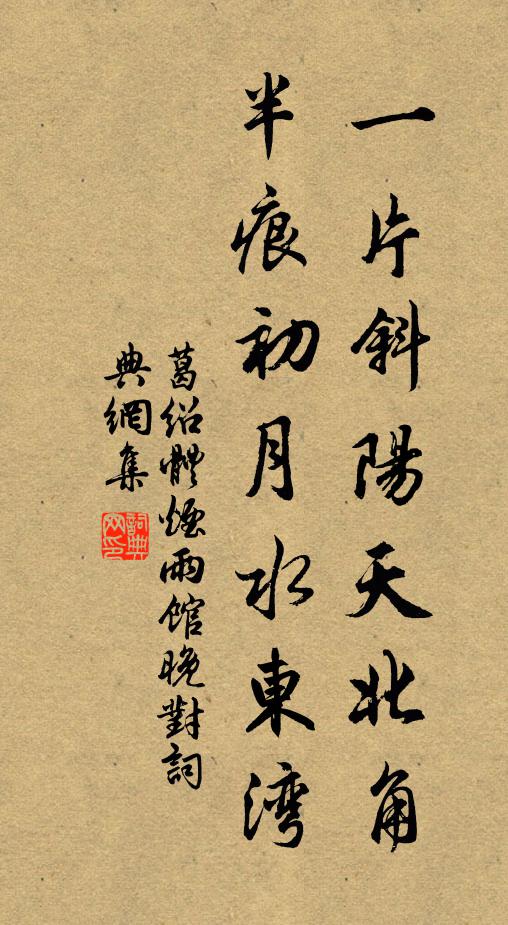 一片斜陽天北角
半痕初月水東湾
葛紹體煙雨館晚對詞
典網集
詞典
网印